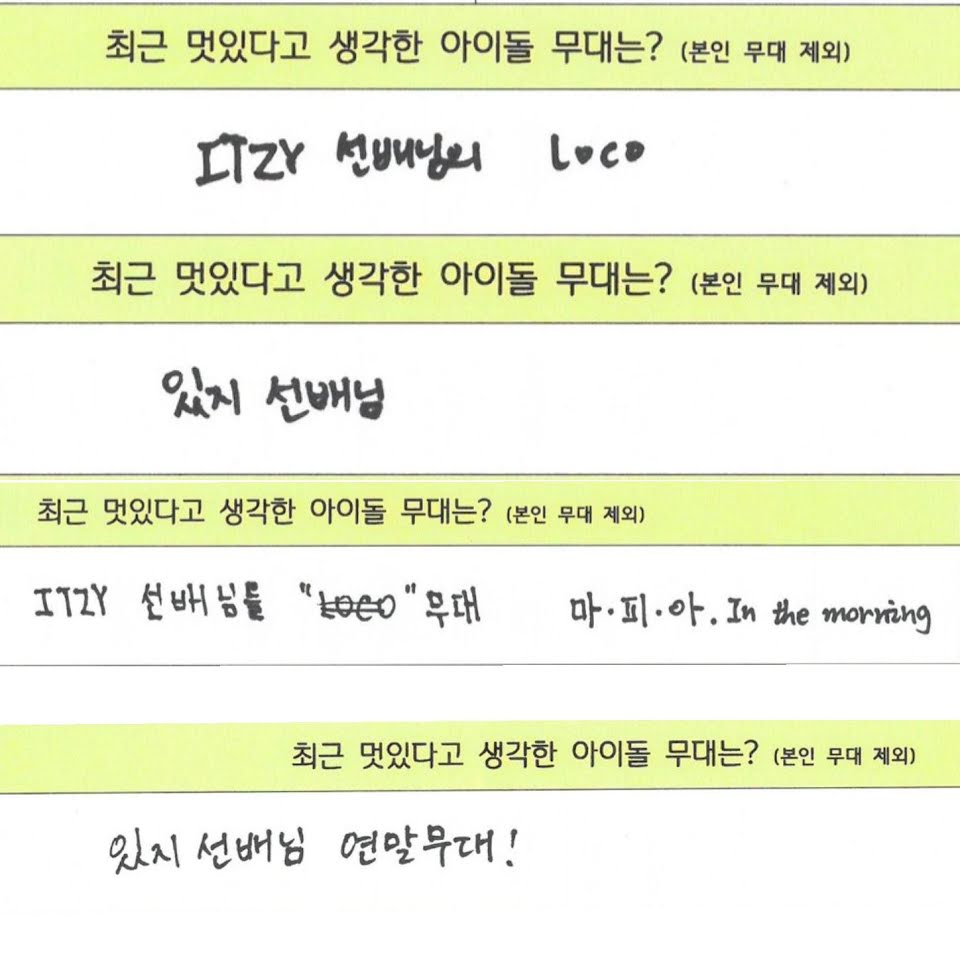 최근 멋있다고 생각한 아이돌 무대는? (본인 무대 제외)
ITZY 선배님의 Loco
최근 멋있다고 생각한 아이돌 무대는? (본인 무대 제외)
있지 선배님
최근 멋있다고 생각한 아이돌 무대는? (본인 무대 제외)
ITZY 선배님들 "LOCO" 무대 마·피·아. In the morning
최근 멋있다고 생각한 아이돌 무대는? (본인 무대 제외)
있지 선배님 연말무대!